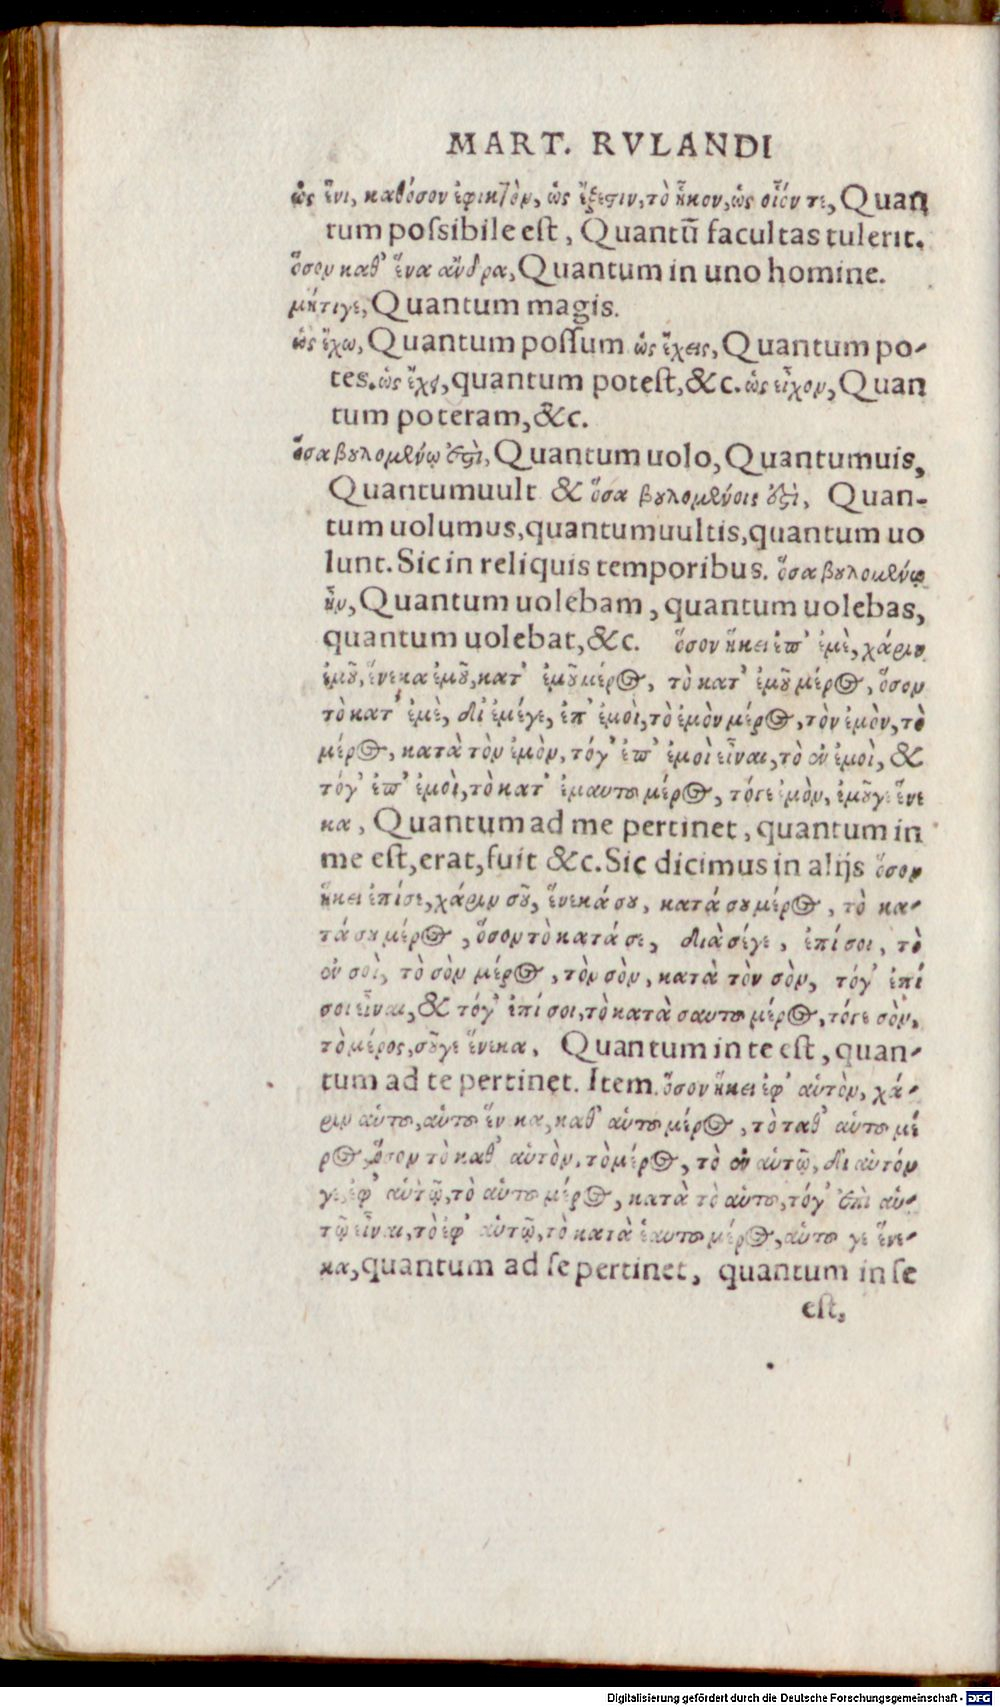 MART. RVLANDI
ὡς ἔνι, καθόσον ἐφικτὸν, ὡς ἔξεστιν, τὸ ἧκον, ὡς οἷόν τε, Quan
tum possibile est, Quantũ facultas tulerit.
ὅσον καθ' ἕνα ἄνδρα, Quantum in uno homine.
μήτιγε, Quantum magis.
ὡς ἔχω, Quantum possum ὡς ἔχεις, Quantum po-
tes. ὡς ἔχει, quantum potest, &c. ὡς εἶχον, Quan
tum poteram, &c.
ὅσα βουλομένῳ ἐστὶ, Quantum uolo, Quantumuis,
Quantumuult & ὅσα βουλομένοις ἐστὶ, Quan-
tum uolumus, quantumuultis, quantum uo
lunt. Sic in reliquis temporibus. ὅσα βουλομένῳ
ἦν, Quantum uolebam, quantum uolebas,
quantum uolebat, &c. ὅσον ἥκει ἐπ' ἐμὲ, χάριν
ἐμοῦ, ἕνεκα ἐμοῦ, κατ' ἐμοῦ μέρος, τὸ κατ' ἐμοῦ μέρος, ὅσον
τὸ κατ' ἐμὲ, δι' ἐμέγε, ἐπ' ἐμοὶ, τὸ ἐμὸν μέρος, τὸν ἐμὸν, τὸ
μέρος, κατὰ τὸν ἐμὸν, τόγ' ἐπ' ἐμοὶ εἶναι, τὸ ἐν ἐμοὶ, &
τόγ' ἐπ' ἐμοὶ, τὸ κατ' ἐμαυτοῦ μέρος, τόγε ἐμὸν, ἐμοῦγε ἕνε
κα, Quantum ad me pertinet, quantum in
me est, erat, fuit &c. Sic dicimus in alijs ὅσον
ἥκει ἐπί σε, χάριν σοῦ, ἕνεκά σου, κατά σου μέρος, τὸ κα-
τά σου μέρος, ὅσον τὸ κατά σε, διὰ σέγε, ἐπί σοι, τὸ
ἐν σοὶ, τὸ σὸν μέρος, τὸν σὸν, κατὰ τὸν σὸν, τόγ' ἐπί
σοι εἶναι, & τόγ' ἐπί σοι, τὸ κατὰ σαυτοῦ μέρος, τόγε σὸν,
τὸ μέρος, σοῦγε ἕνεκα, Quantum in te est, quan-
tum ad te pertinet. Item. ὅσον ἥκει ἐφ' αὑτὸν, χά-
ριν αὑτοῦ, αὑτοῦ ἕν κα, καθ' αὑτοῦ μέρος, τὸ ταθ' αὑτοῦ μέ
ρος, ὅσον τὸ καθ' αὑτὸν, τὸ μέρος, τὸ ἐν αὑτῷ, δι αὑτόν
γε, ἐφ' αὑτῷ, τὸ αὑτοῦ μέρος, κατὰ τὸ αὑτοῦ, τόγ' ἐπὶ αὑ-
τῷ εἶναι, τὸ ἐφ' αὑτῷ, τὸ κατὰ ἑαυτοῦ μέρος, αὑτοῦ γε ἕνε-
κα, quantum ad se pertinet, quantum in se
est,
Digitalisierung gefördert durch die Deutsche Forschungsgemeinschaft - DFG